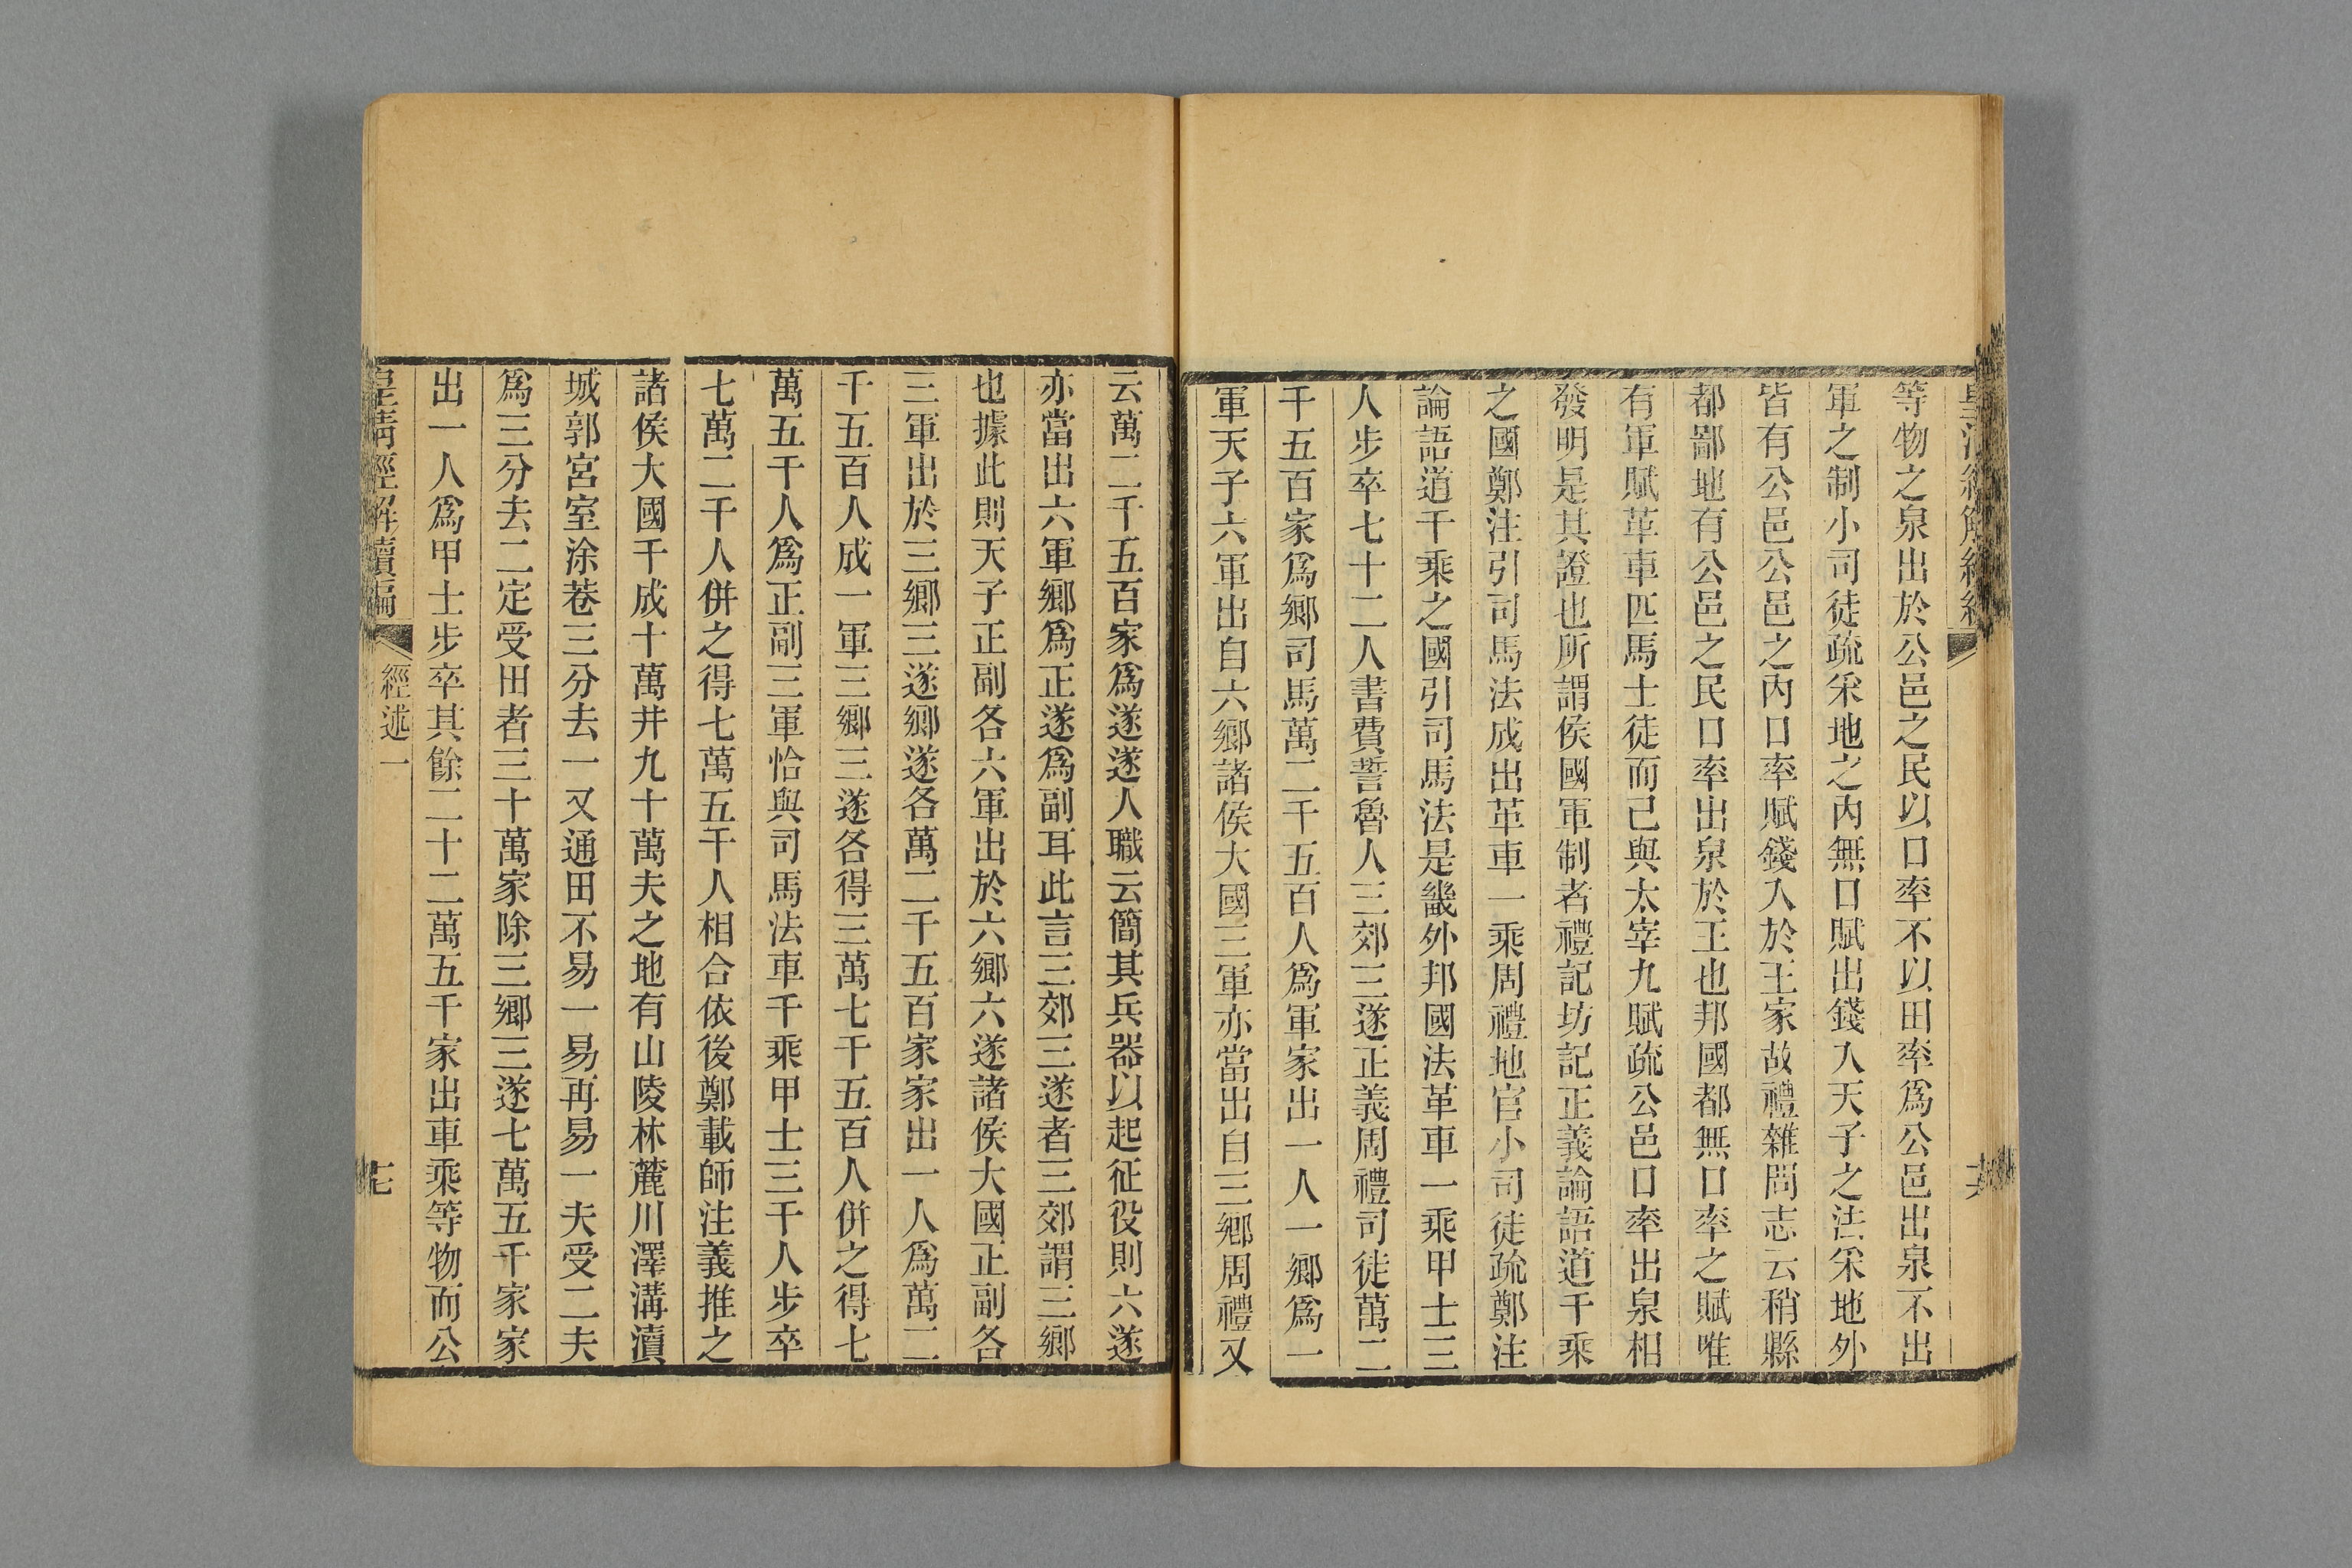 等物之泉出於公邑之民以口率不以田率爲公邑出泉不出
軍之制小司徒疏采地之內無口賦出錢入天子之法采地外
皆有公邑公邑之內口率賦錢入於王家故禮雜問志云稍縣
都鄙地有公邑之民口率出泉於王也邦國都無口率之賦唯
有軍賦革車匹馬士徒而已與太宰九賦疏公邑口率出泉相
發明是其證也所謂侯國軍制者禮記坊記正義論語道千乘
之國鄭注引司馬法成出革車一乘周禮地官小司徒疏鄭注
論語道千乘之國引司馬法是畿外邦國法革車一乘甲士三
人步卒七十二人書費誓魯人三郊三遂正義周禮司徒萬二
千五百家爲鄉司馬萬二千五百人爲軍家出一人一鄉爲一
軍天子六軍出自六鄉諸侯大國三軍亦當出自三鄉周禮又
云萬二千五百家爲遂遂人職云簡其兵器以起征役則六遂
亦當出六軍鄉爲正遂爲副耳此言三郊三遂者三郊謂三鄉
也據此則天子正副各六軍出於六鄉六遂諸侯大國正副各
三軍出於三鄉三遂鄉遂各萬二千五百家家出一人爲萬二
千五百人成一軍三鄉三遂各得三萬七千五百人併之得七
萬五千人爲正副三軍恰與司馬法車千乘甲士三千人步卒
七萬二千人併之得七萬五千人相合依後鄭載師注義推之
諸侯大國千成十萬井九十萬夫之地有山陵林麓川澤溝瀆
城郭宮室涂巷三分去一又通田不易一易再易一夫受二夫
爲三分去二定受田者三十萬家除三鄉三遂七萬五千家家
出一人爲甲士步卒其餘二十二萬五千家出車乘等物而公
皇清經解續編 經述一 七